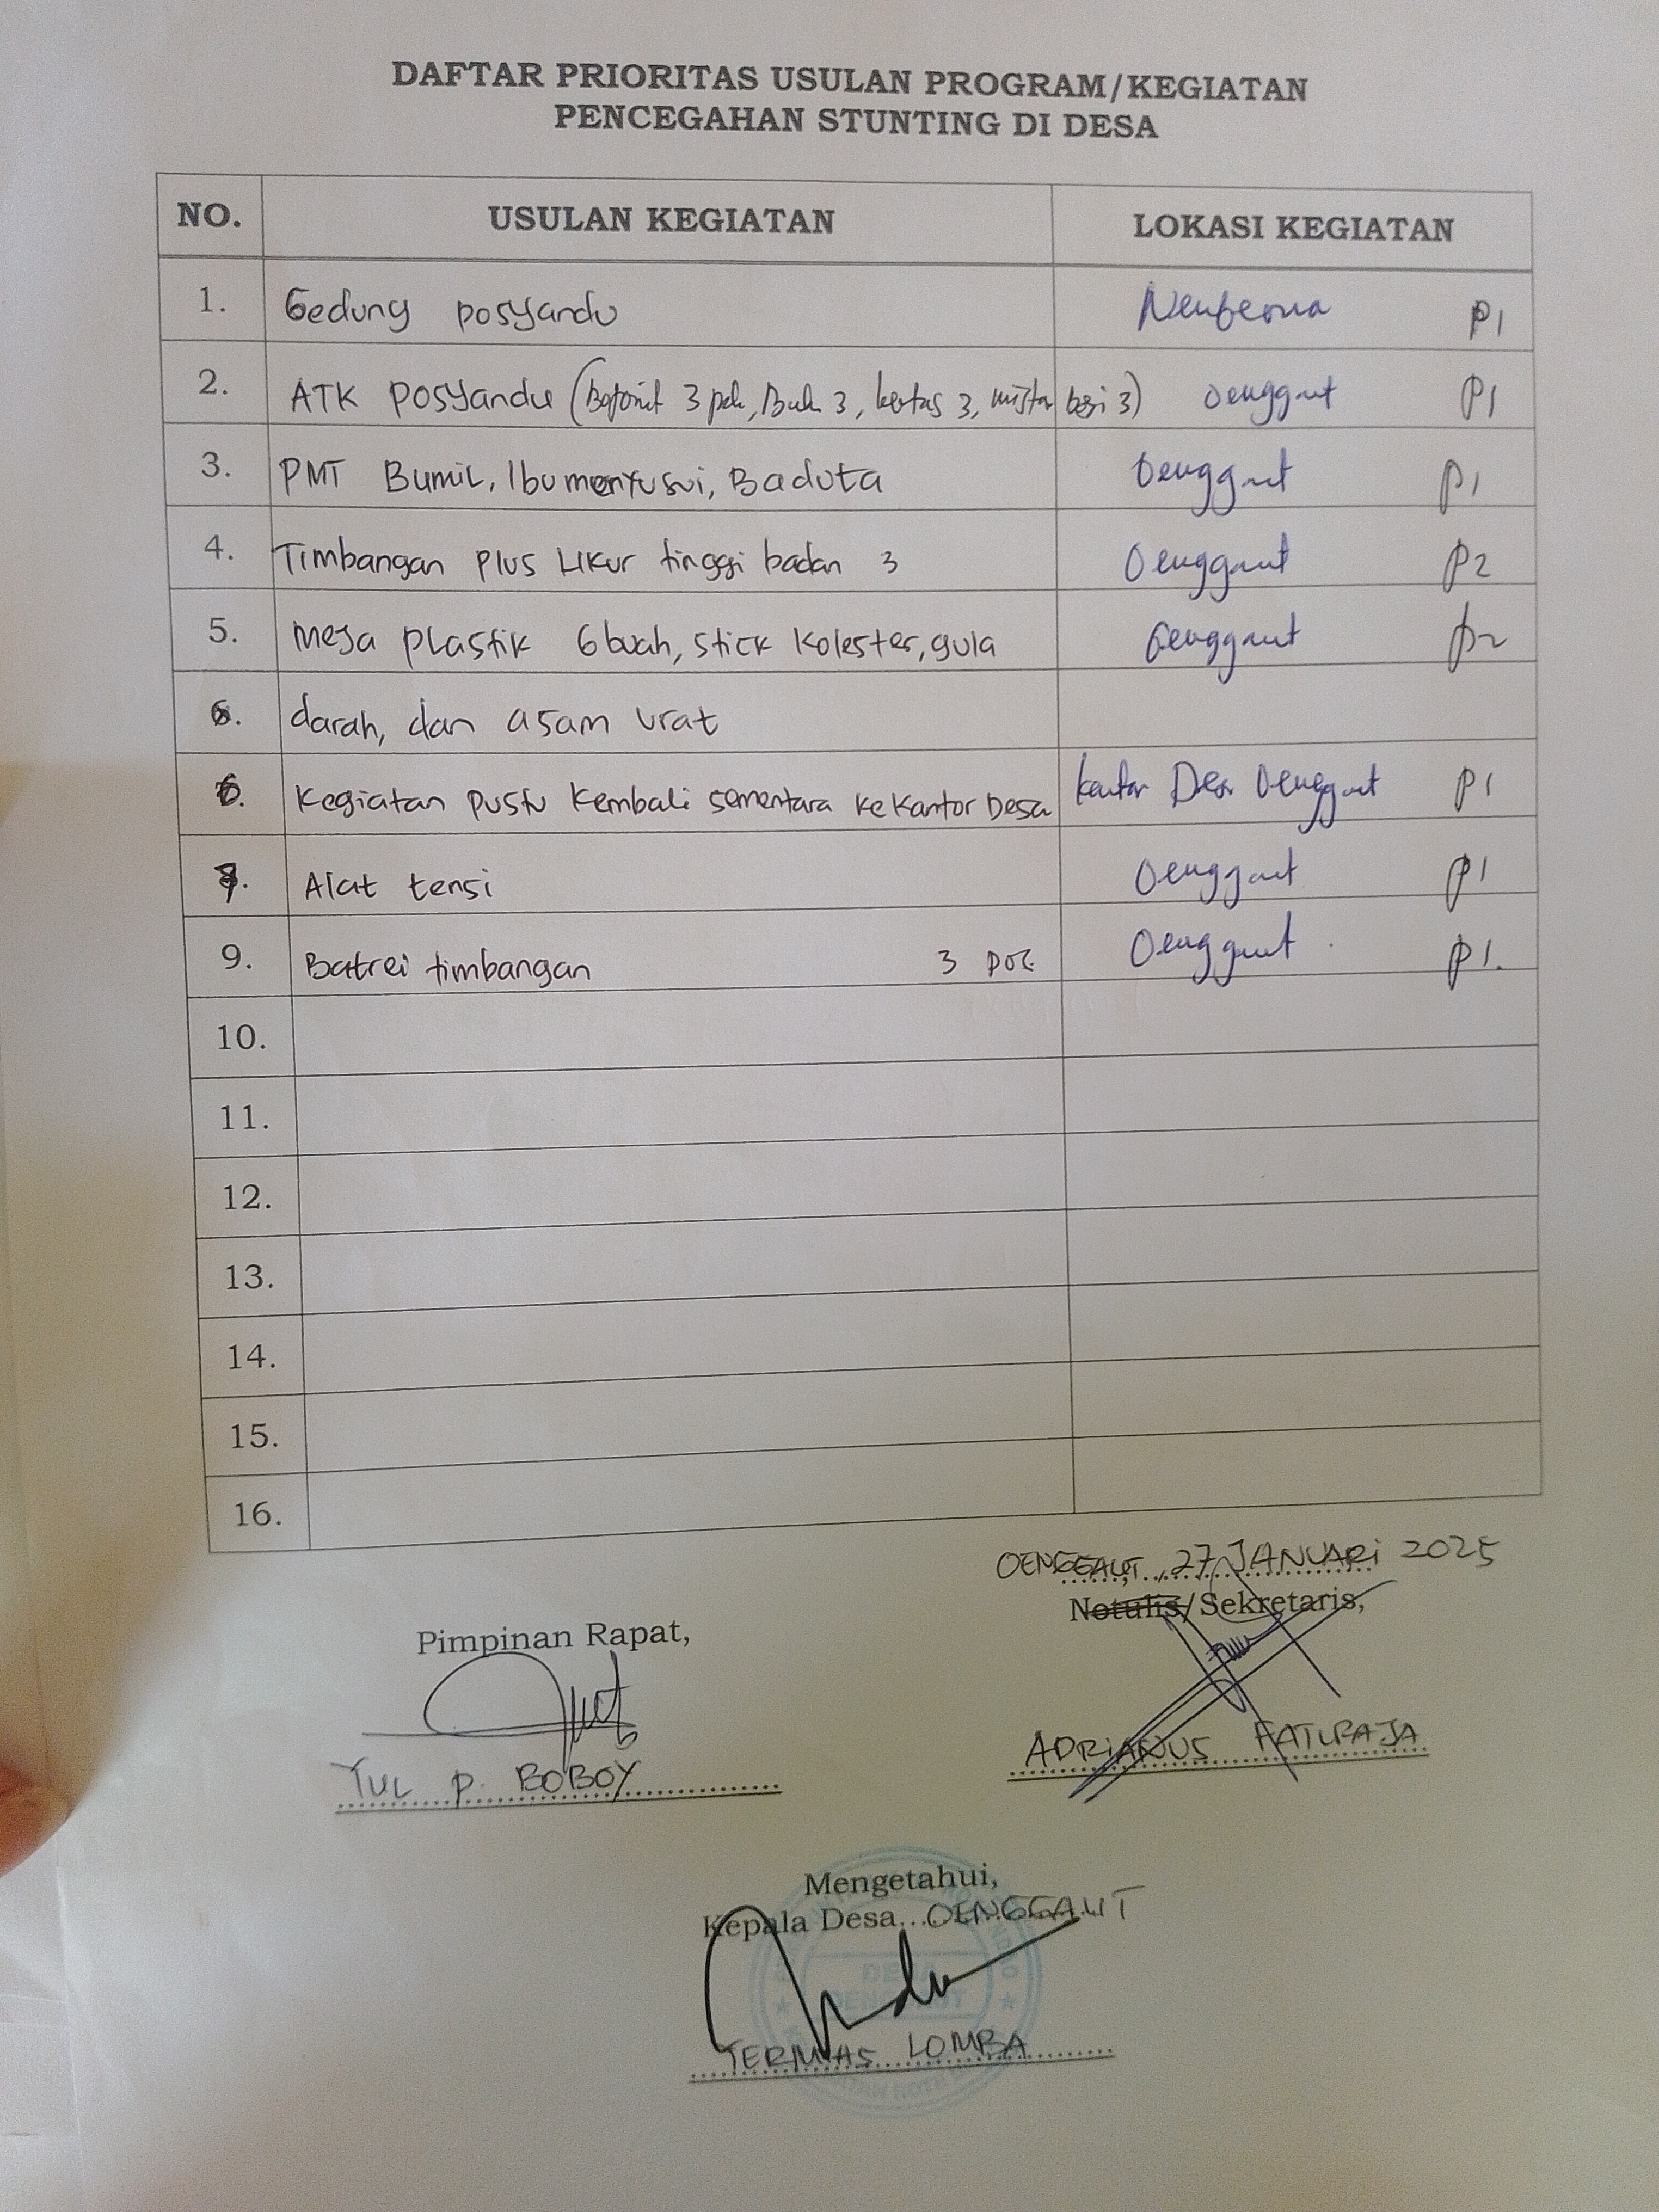 DAFTAR PRIORITAS USULAN PROGRAM/KEGIATAN
PENCEGAHAN STUNTING DI DESA
NO. USULAN KEGIATAN LOKASI KEGIATAN
1. Gedung posyandu P1
2. ATK Posyandu ( 3 , Buku 3, kertas 3, mistar besi 3) Oenggaut P1
3. PMT Bumil, Ibu menyusui, Baduta Oenggaut P1
4. Timbangan Plus Ukur tinggi badan 3 Oenggaut P2
5. Meja plastik 6 buah, stick kolester, gula Oenggaut P2
darah, dan asam urat
6. Kegiatan pustu kembali sementara ke Kantor Desa kantor Desa Oenggaut P1
7. Alat tensi Oenggaut P1
9. Batrei timbangan 3 Oenggaut P1.
10.
11.
12.
13.
14.
15.
16.
OENGGAUT, 27 JANUARI 2025
Notulis/Sekretaris,
Pimpinan Rapat,
ADRIANUS
YUL P. BOBOY
Mengetahui,
Kepala Desa OENGGAUT
DESA
OENGGAUT
LOMBA